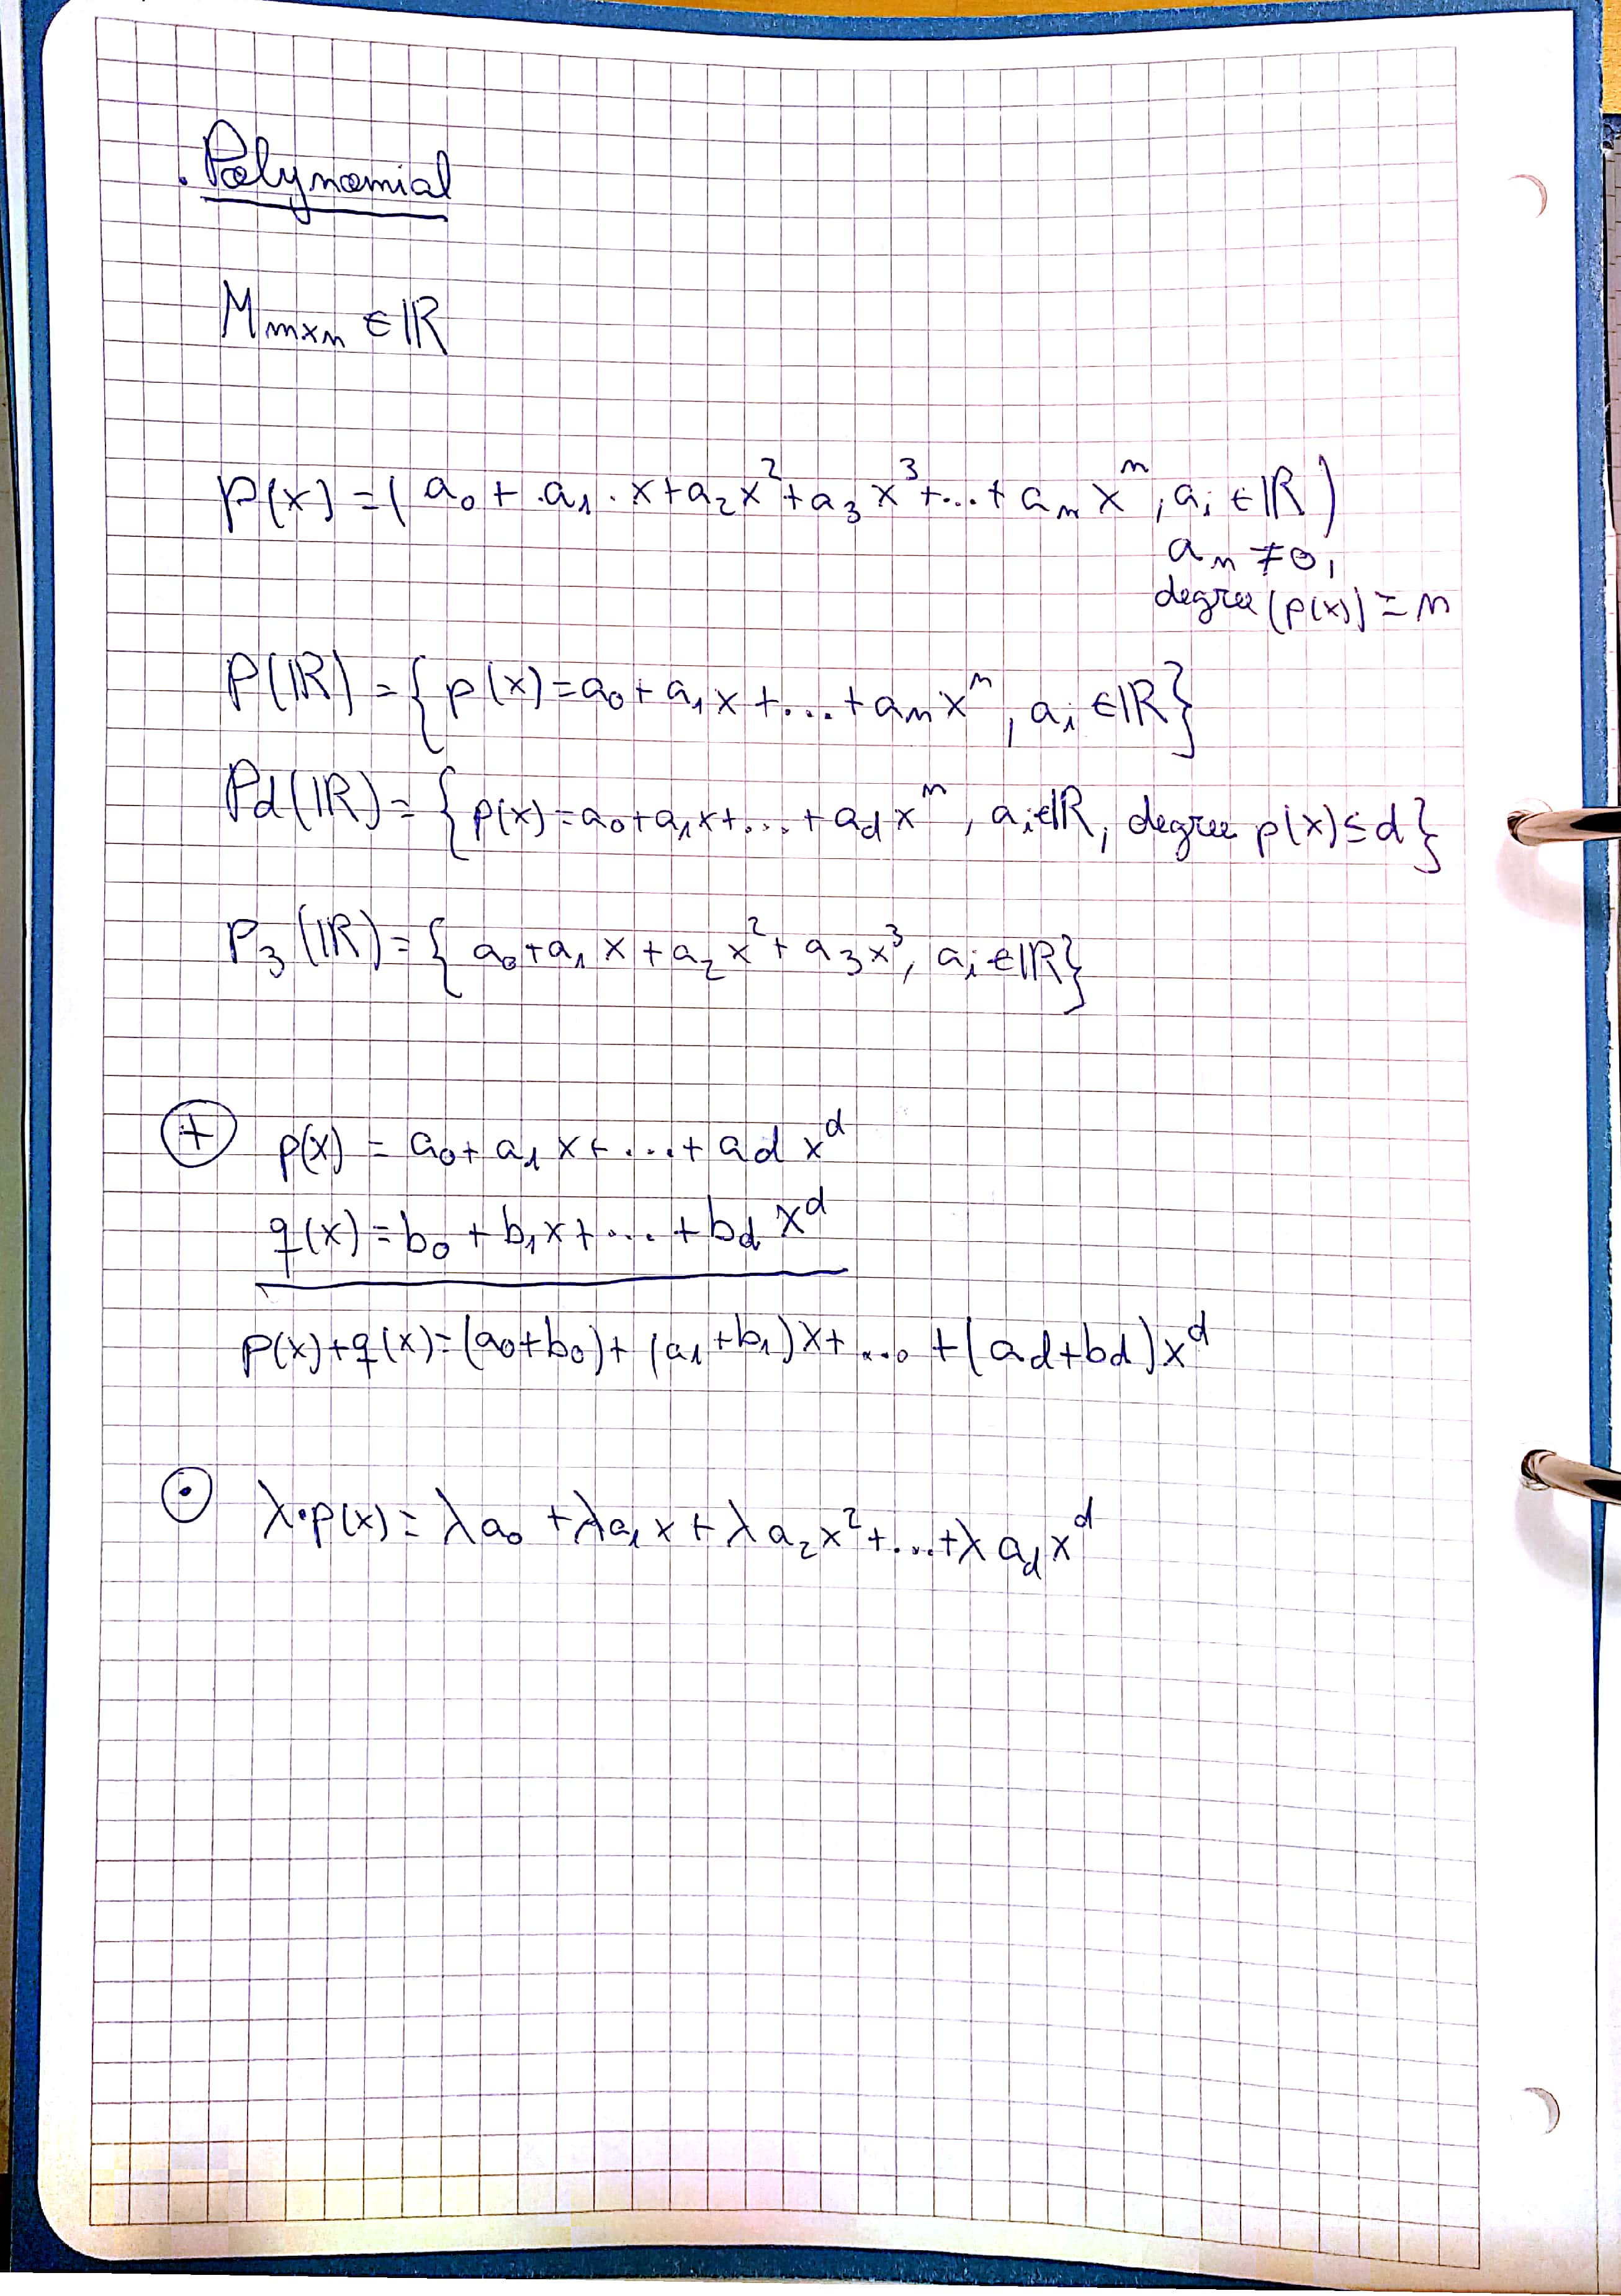 . Polynomial
M m×n ∈ ℝ
p(x) = ( a₀ + .a₁ . x + a₂x² + a₃x³ + ... + aₙ xⁿ, aᵢ ∈ ℝ )
aₙ ≠ 0,
degree (p(x)) = n
P(ℝ) = { p(x) = a₀ + a₁x + ... + aₙxⁿ, aᵢ ∈ ℝ }
Pd(ℝ) = { p(x) = a₀ + a₁x + ... + a_d xⁿ, aᵢ ∈ ℝ, degree p(x) ≤ d }
P₃(ℝ) = { a₀ + a₁x + a₂x² + a₃x³, aᵢ ∈ ℝ }
⊕ p(x) = a₀ + a₁x + ... + a_d x^d
q(x) = b₀ + b₁x + ... + b_d x^d
p(x) + q(x) = (a₀+b₀) + (a₁+b₁)x + ... + (a_d+b_d)x^d
⊙ λ·p(x) = λa₀ + λa₁x + λa₂x² + ... + λa_d x^d